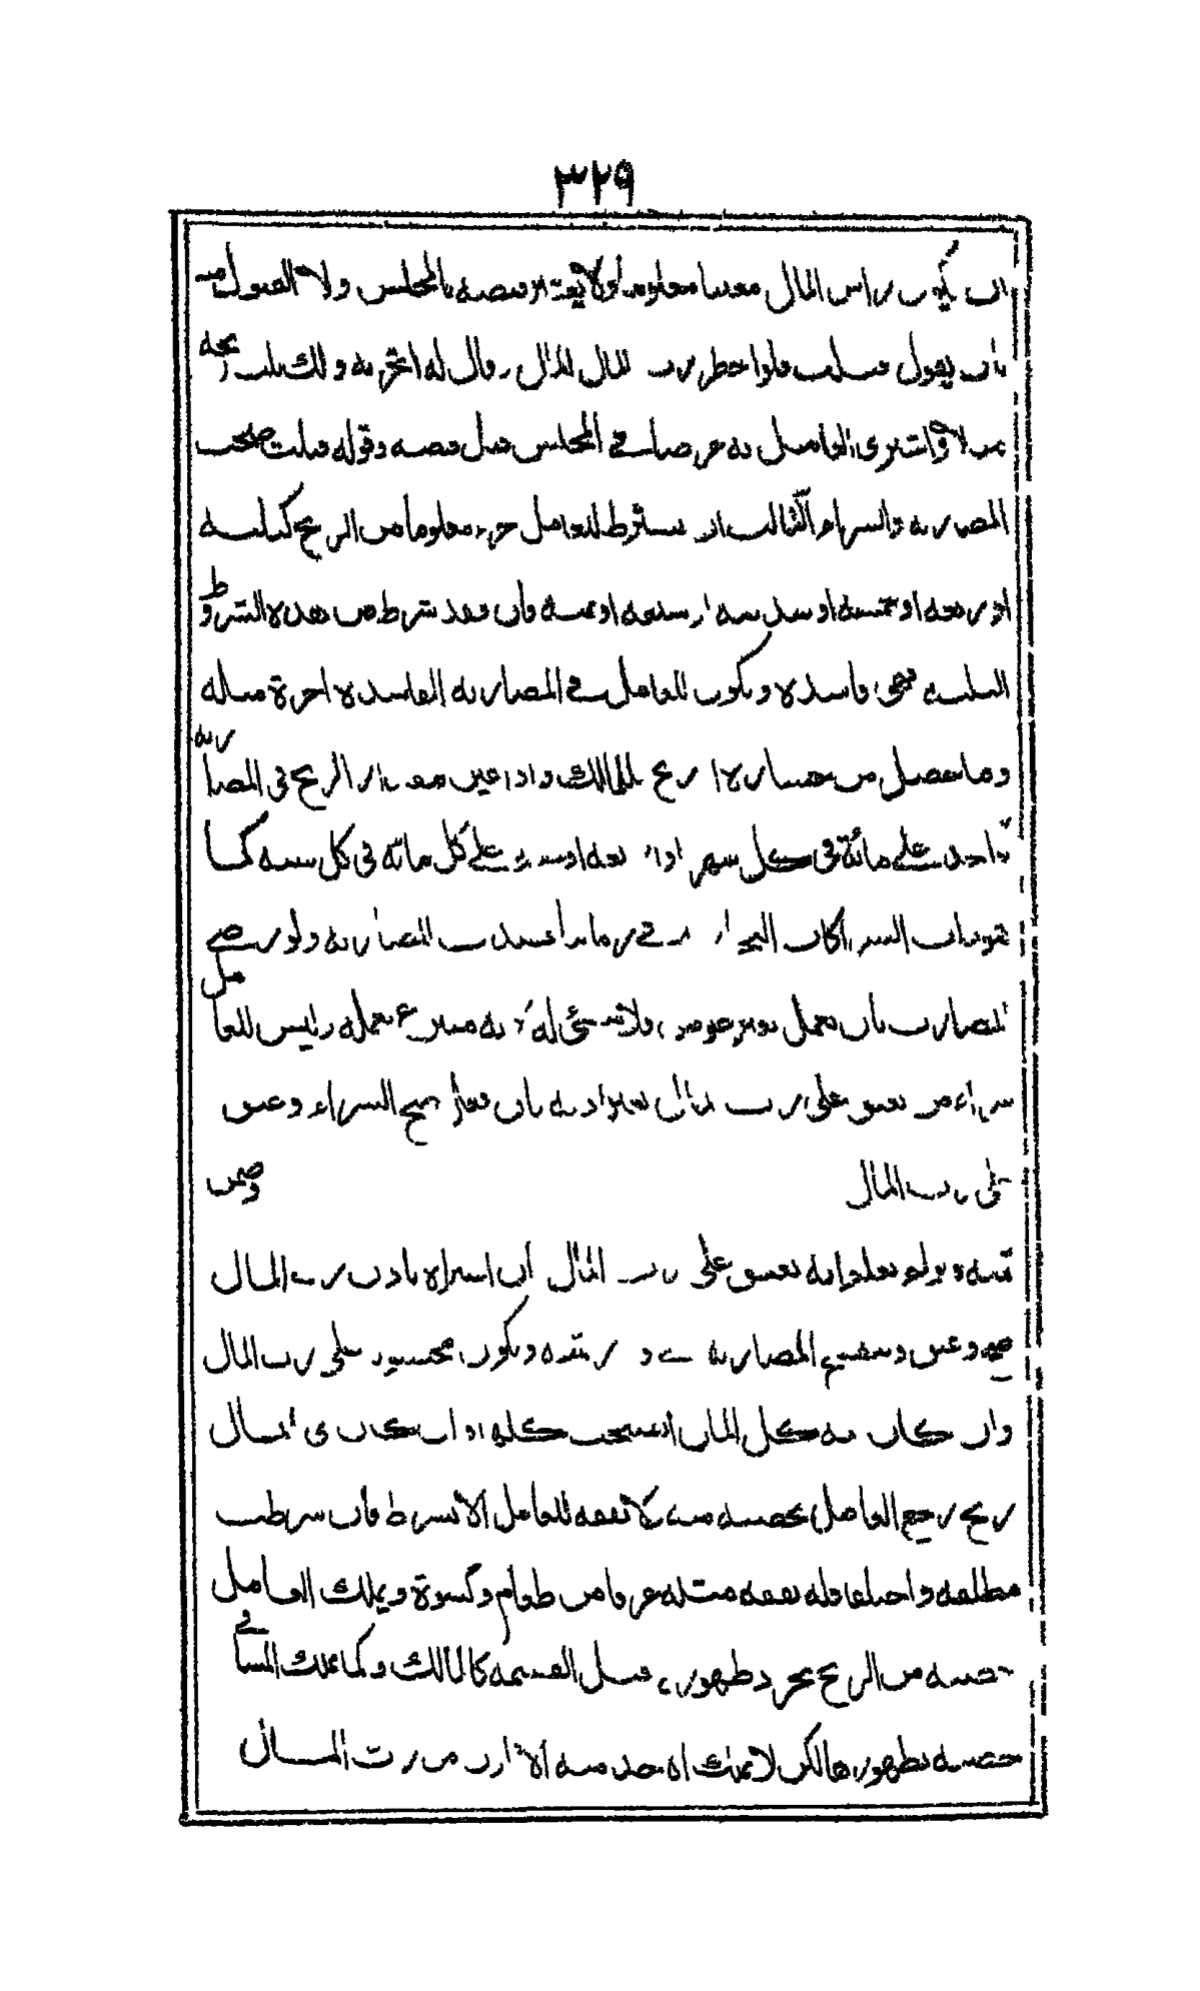 ٣٢٩
ان يكون راس المال معينا معلوما ولا يعتبر قبضه بالمجلس ولا القبول
بان يقول قبلت فلو احضر رب المال المال وقال له اتجر به ولك ثلث ربحه
مثلا فاشترى العامل به عرضا في المجلس قبل قبضه وقوله قبلت صحت
المضاربة والشراء الثالث ان يشترط للعامل جزء معلوما من الربح كثلثه
او ربعه او خمسه او سدسه او سبعه او ثمنه فان فقد شرط من هذه الشروط
الثلث فهي فاسدة ويكون للعامل في المضاربة الفاسدة اجرة مثله
وما يحصل من خسارة او ربح للمالك واذا عين مقدار الربح في المضاربة
واحد على مائة في كل شهر او اربعة او ستة على كل مائة في كل سنة كما
التجار في زماننا فسدت المضاربة ولو رضي
المضارب بان يعمل بغير عوض ولا شيء له لانه متبرع بعمله وليس للعامل
شراء من يعتق على رب المال بغير اذنه بان فعل صح الشراء وعتق
على رب المال وضمن
على رب المال ان اشتراه باذن رب المال
صح وعتق وتنفسخ المضاربة في قدر نقده ويكون محسوبا على رب المال
وان كان ثمنه كل المال انفسخت كلها وان كان في المال
ربح رجع العامل بحصته منه ولا نفقة للعامل الا بشرط فان شرطت
مطلقة واختلفا فله نفقة مثله عرفا من طعام وكسوة ويملك العامل
حصته من الربح بمجرد ظهوره قبل القسمة كالمالك وكما يملك المساقي
حصته بظهورها لكن لا يملك الاخذ منه الا باذن من رب المال